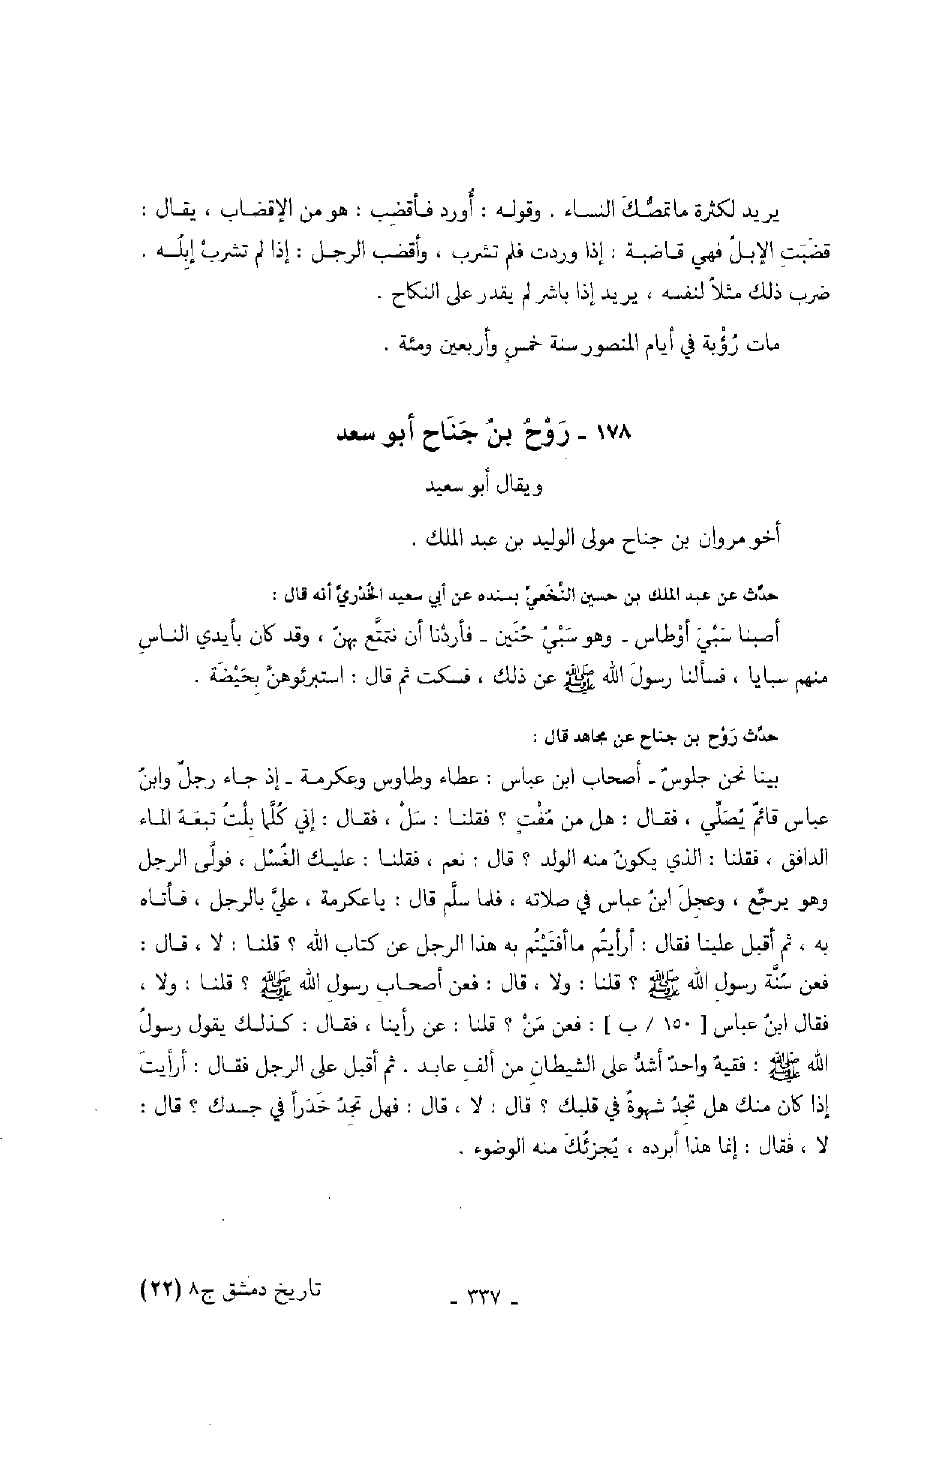 يريد لكثرة ماتمصُّكَ النساء . وقوله : أُورد فأقضب : هو من الإقضاب ، يقال :
قضَبَتِ الإبلُ فهي قاضبة : إذا وردت فلم تشرب ، وأقضب الرجل : إذا لم تشربْ إبلُه .
ضرب ذلك مثلاً لنفسه ، يريد إذا باشر لم يقدر على النكاح .
مات رُؤْبة في أيام المنصور سنة خمسٍ وأربعين ومئة .
١٧٨ ـ رَوْحُ بنُ جَنَاح أبو سعد
ويقال أبو سعيد
أخو مروان بن جناح مولى الوليد بن عبد الملك .
حدَّث عن عبد الملك بن حسين النَّخَعيّ بسنده عن أبي سعيد الخُدْريِّ أنه قال :
أصبنا سَبْيَ أَوْطاس ـ وهو سَبْيُ حُنَين ـ فأردْنا أن نتمتَّع بهنّ ، وقد كان بأيدي الناسِ
منهم سبايا ، فسألنا رسولَ الله ﷺ عن ذلك ، فسكت ثم قال : استبرئوهنَّ بحَيْضَة .
حدَّث رَوْح بن جناح عن مجاهد قال :
بينا نحن جلوسٌ ـ أصحاب ابن عباس : عطاء وطاوس وعكرمة ـ إذ جاء رجلٌ وابنُ
عباس قائمٌ يُصَلِّي ، فقال : هل من مُفْتٍ ؟ فقلنا : سَلْ ، فقال : إني كُلَّما بِلْتُ تبعَهُ الماء
الدافق ، فقلنا : الذي يكونُ منه الولد ؟ قال : نعم ، فقلنا : عليك الغُسْل ، فولَّى الرجل
وهو يرجِّع ، وعجلَ ابنُ عباس في صلاته ، فلما سلَّم قال : ياعكرمة ، عليَّ بالرجل ، فأتاه
به ، ثم أقبل علينا فقال : أرأيتُم ماأفتَيْتُم به هذا الرجل عن كتاب الله ؟ قلنا : لا ، قال :
فعن سُنَّة رسولِ الله ﷺ ؟ قلنا : ولا ، قال : فعن أصحابِ رسولِ الله ﷺ ؟ قلنا : ولا ،
فقال ابنُ عباس [ ١٥٠ / ب ] : فعن مَنْ ؟ قلنا : عن رأينا ، فقال : كذلك يقول رسولُ
الله ﷺ : فقيهٌ واحدٌ أشدُّ على الشيطانِ من ألفِ عابد . ثم أقبل على الرجل فقال : أرأيتَ
إذا كان منك هل تجدُ شهوةً في قلبك ؟ قال : لا ، قال : فهل تجدُ خَدَراً في جسدك ؟ قال :
لا ، فقال : إنما هذا أبرده ، يُجزئُكَ منه الوضوء .
ـ ٣٣٧ ـ
تاريخ دمشق ج٨ (٢٢)